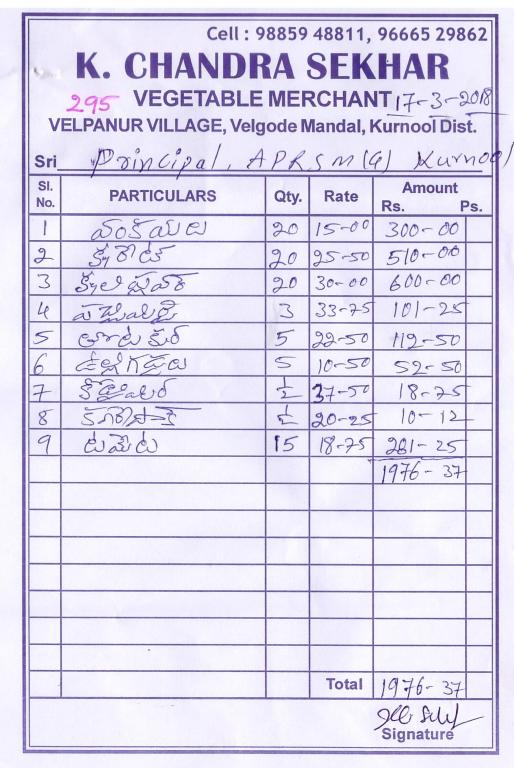 Cell : 98859 48811, 96665 29862
K. CHANDRA SEKHAR
295 VEGETABLE MERCHANT 17-3-2018
VELPANUR VILLAGE, Velgode Mandal, Kurnool Dist.
Sri Principal, APRSM(G) Kurnool
Sl. No. PARTICULARS Qty. Rate Amount Rs. Ps.
1 వంకాయలు 20 15-00 300-00
2 క్యారెట్ 20 25-50 510-00
3 20 30-00 600-00
4 పచ్చిమిర్చి 3 33-75 101-25
5 తోటకూర 5 22-50 112-50
6 ఉల్లిగడ్డలు 5 10-50 52-50
7 కొత్తిమీర ½ 37-50 18-75
8 ½ 20-25 10-12
9 టమోటా 15 18-75 281-25
1976-37
Total 1976-37
Signature